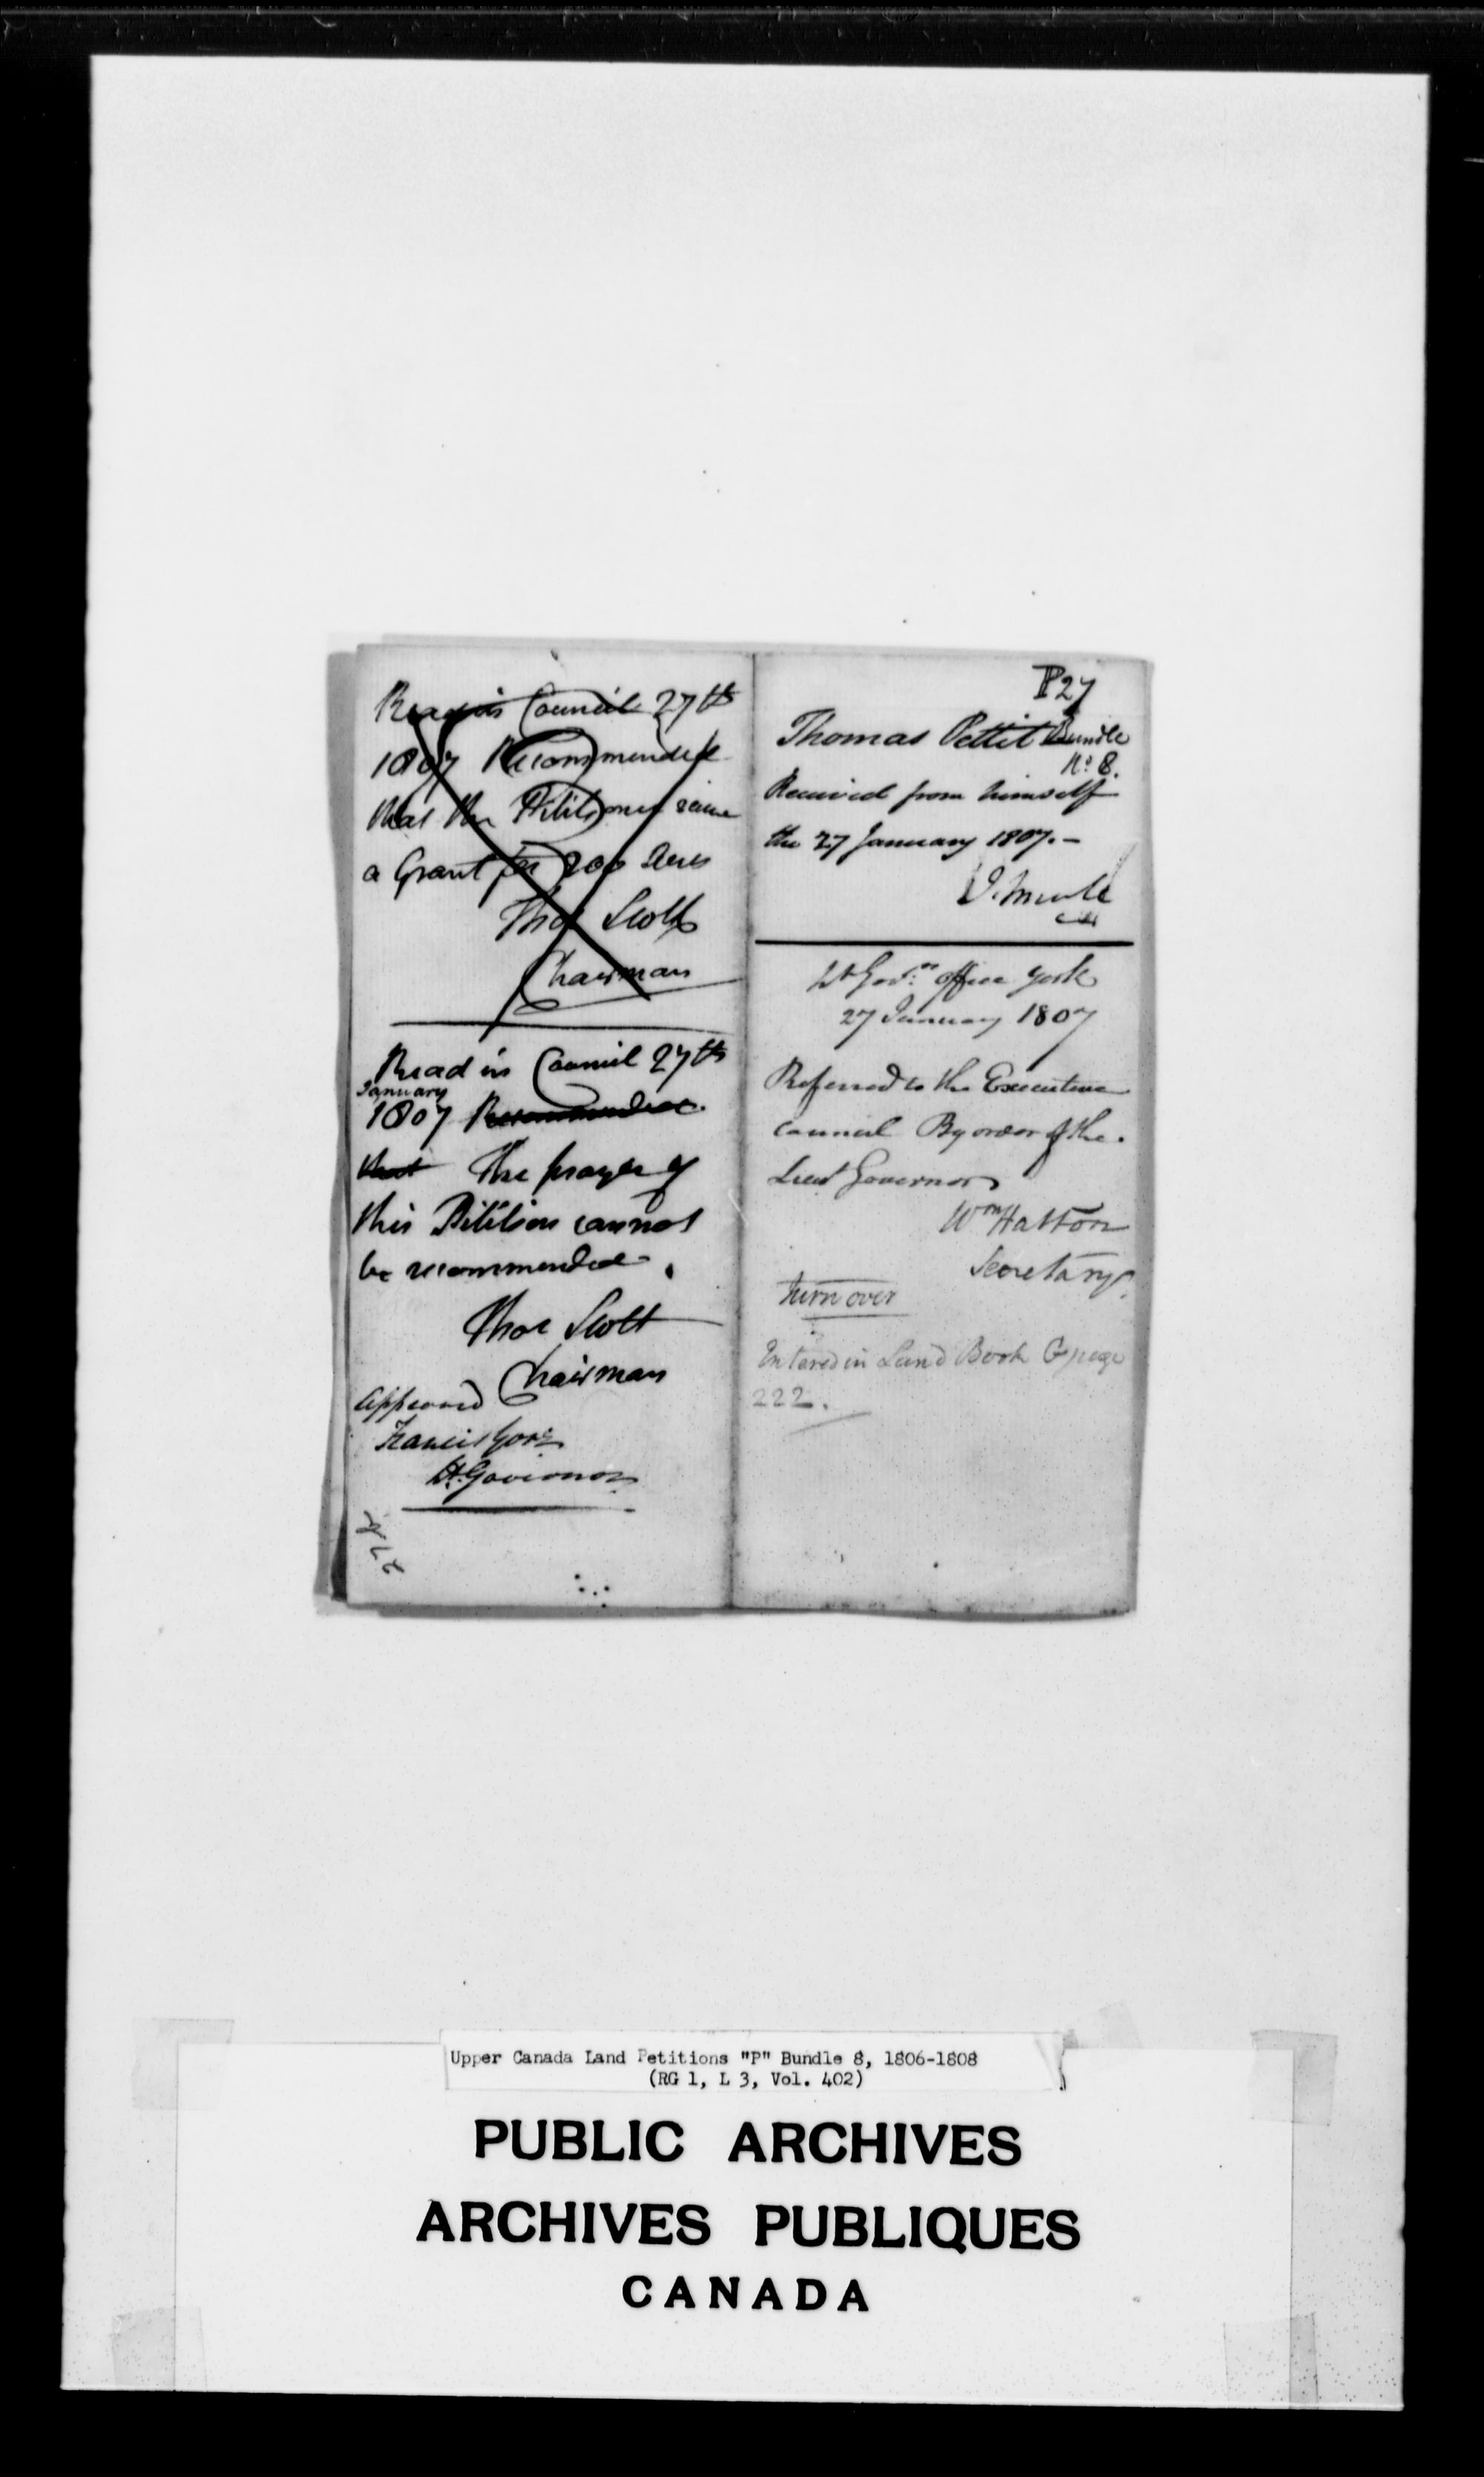 Read in Council 27th
1807 Recommended
that the Petitioner receive
a Grant for 200 Acres
Thos Scott
Chairman
Read in Council 27th
January
1807 Recommended
that The prayer of
this Petition cannot
be recommended.
Thos Scott
Chairman
Approved
Francis Gore
Lt. Governor
P 27
Thomas Pettit Bundle
No. 8.
Received from himself
the 27 January 1807. -
Lt Govrs. Office York
27 January 1807
Referred to the Executive
Council By order of the
Lieut Governor
Wm Halton
Secretary
turn over
Entered in Land Book G page
222.
Upper Canada Land Petitions "P" Bundle 8, 1806-1808
(RG 1, L 3, Vol. 402)
PUBLIC ARCHIVES
ARCHIVES PUBLIQUES
CANADA